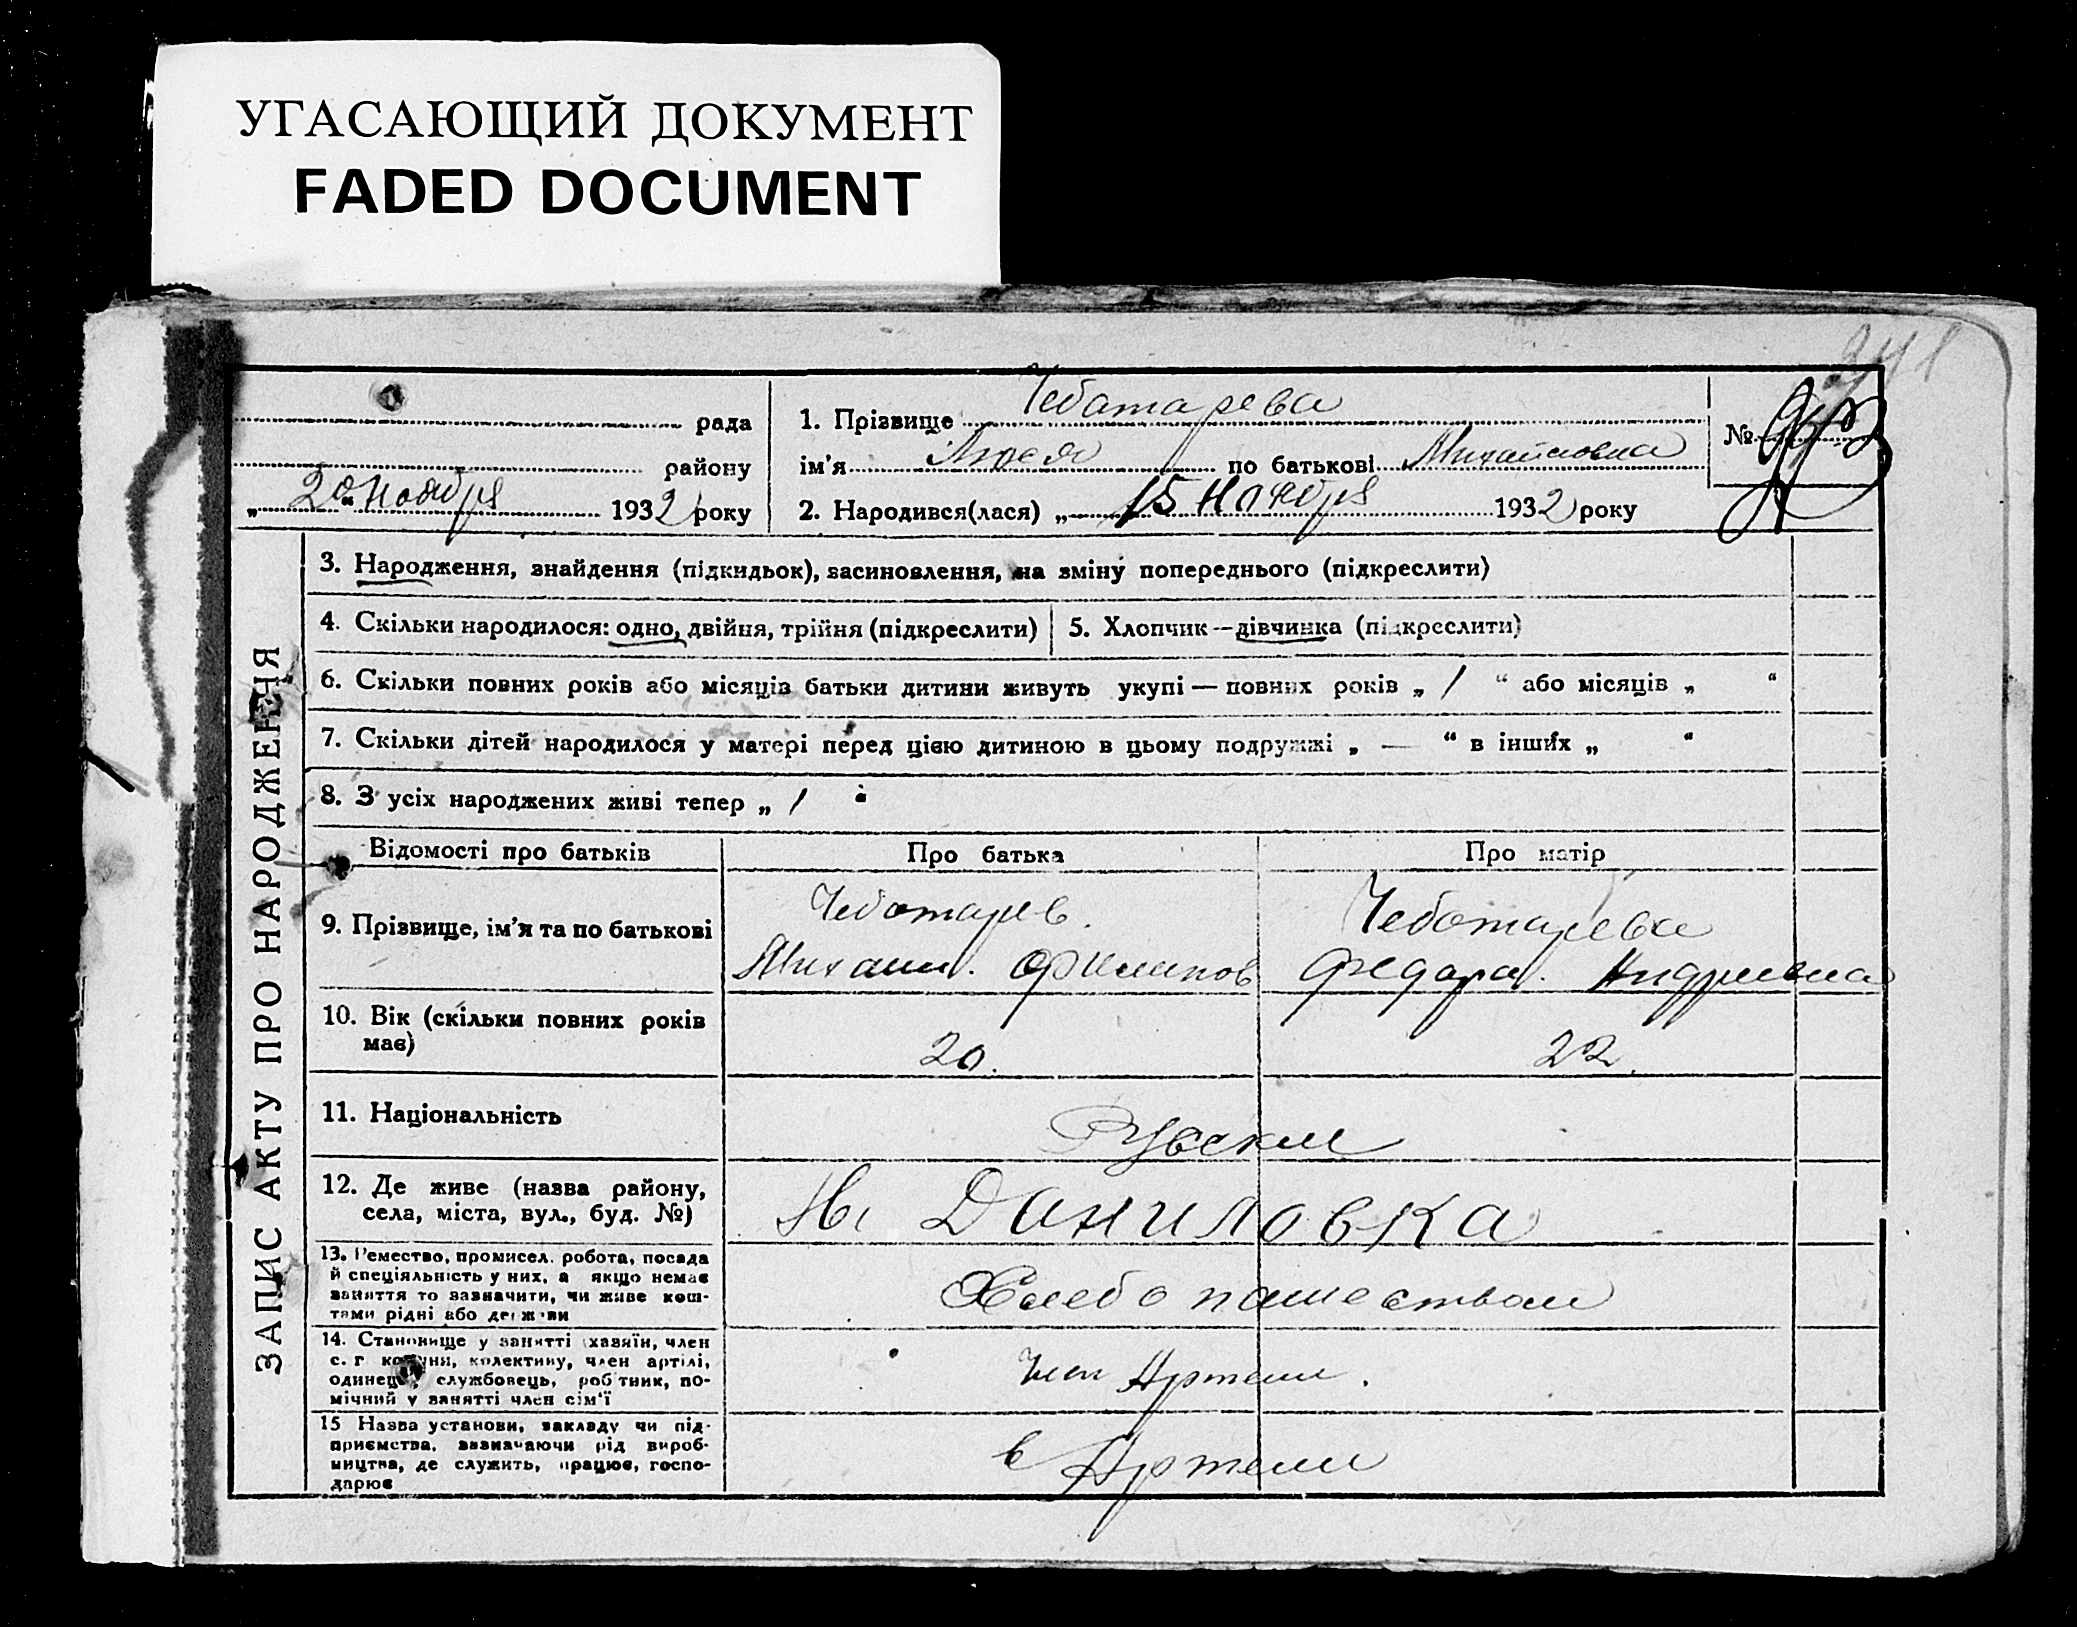 УГАСАЮЩИЙ ДОКУМЕНТ
FADED DOCUMENT
рада
району
„ 20 “ Ноября 1932 року
1. Прізвище Чеботарева
ім'я Люся по батькові Михайловна
2. Народився(лася) „ 15 Ноября 1932 року
№
ЗАПИС АКТУ ПРО НАРОДЖЕННЯ
3. Народження, знайдення (підкидьок), засиновлення, на зміну попереднього (підкреслити)
4. Скільки народилося: одно, двійня, трійня (підкреслити)
5. Хлопчик — дівчинка (підкреслити)
6. Скільки повних років або місяців батьки дитини живуть укупі — повних років „ 1 “ або місяців „ “
7. Скільки дітей народилося у матері перед цією дитиною в цьому подружжі „ — “ в інших „ “
8. З усіх народжених живі тепер „ 1 “
Відомості про батьків
Про батька
Про матір
9. Прізвище, ім'я та по батькові
Чеботарев.
Михаил. Филипов
Чеботарева
Федора. Андриевна
10. Вік (скільки повних років
має)
20.
22.
11. Національність
Руськи
12. Де живе (назва району,
села, міста, вул., буд. №)
Н. Даниловка
13. Ремество, промисел, робота, посада
й спеціяльність у них, а якщо немає
заняття то зазначити, чи живе кош-
тами рідні або держави
Хлебопашеством
14. Становище у занятті (хазяїн, член
с. г комуни, колективу, член артілі,
одинець, службовець, робітник, по-
мічний у занятті член сім'ї
Член Артели.
15 Назва установи, закладу чи під-
приємства, зазначаючи рід вироб-
ництва, де служить, працює, госпо-
дарює
в Артели